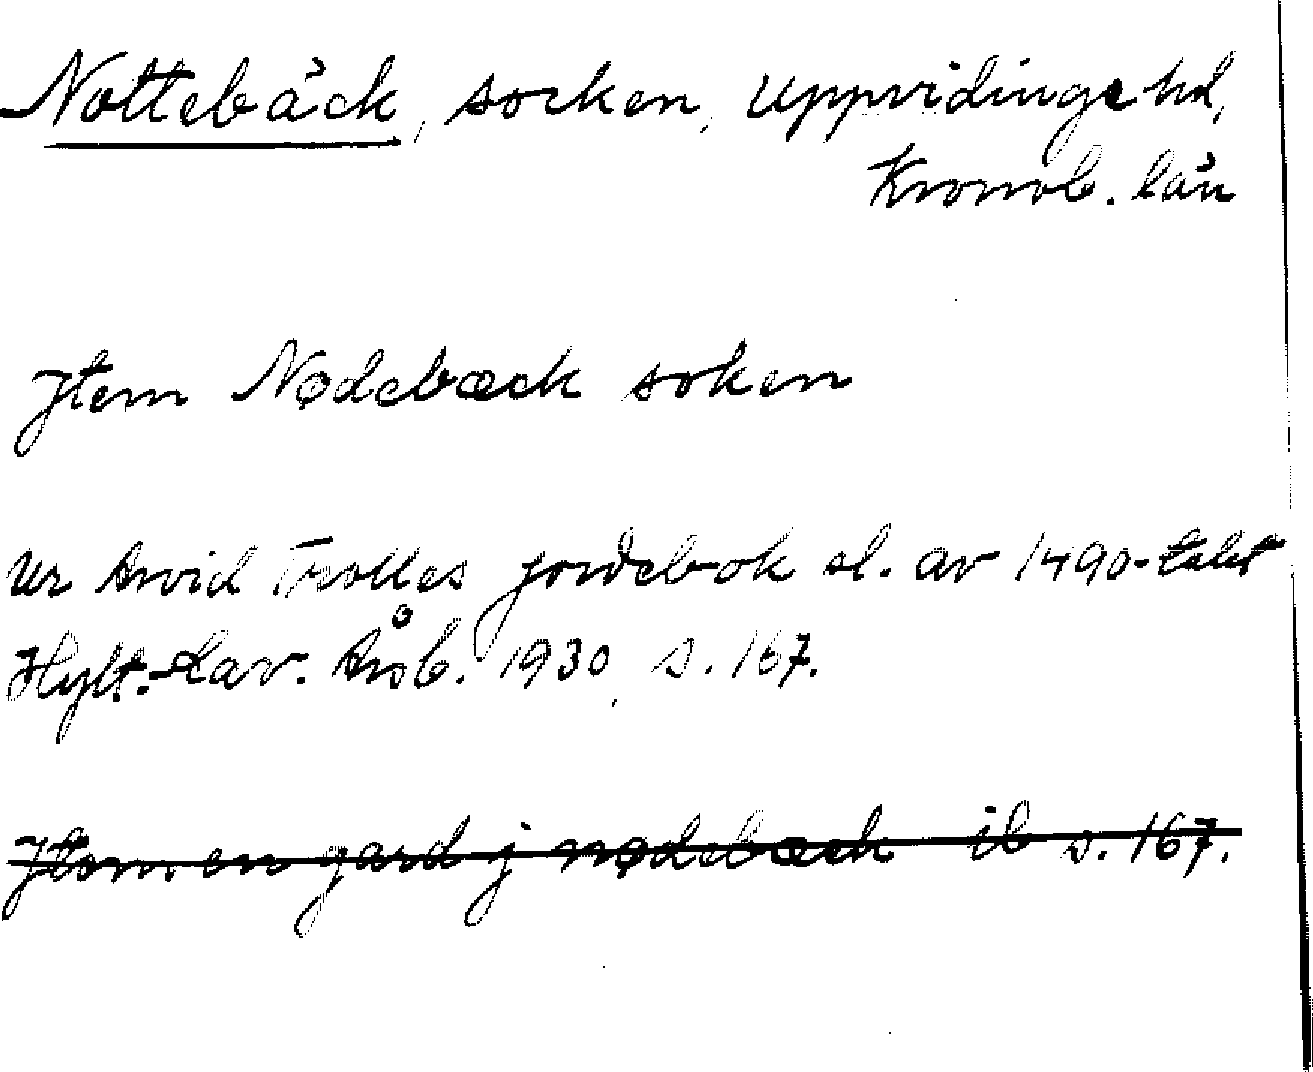 Nottebäck, socken, Uppvidinge hd,
Kronob. län
Jtem Nødebæck soken
Ur Arvid Trolles jordebok sl. av 1490-talet
Hylt.-Cav. Årsb. 1930, s. 167.
Jtem en gard j nødebæck ib s. 167.